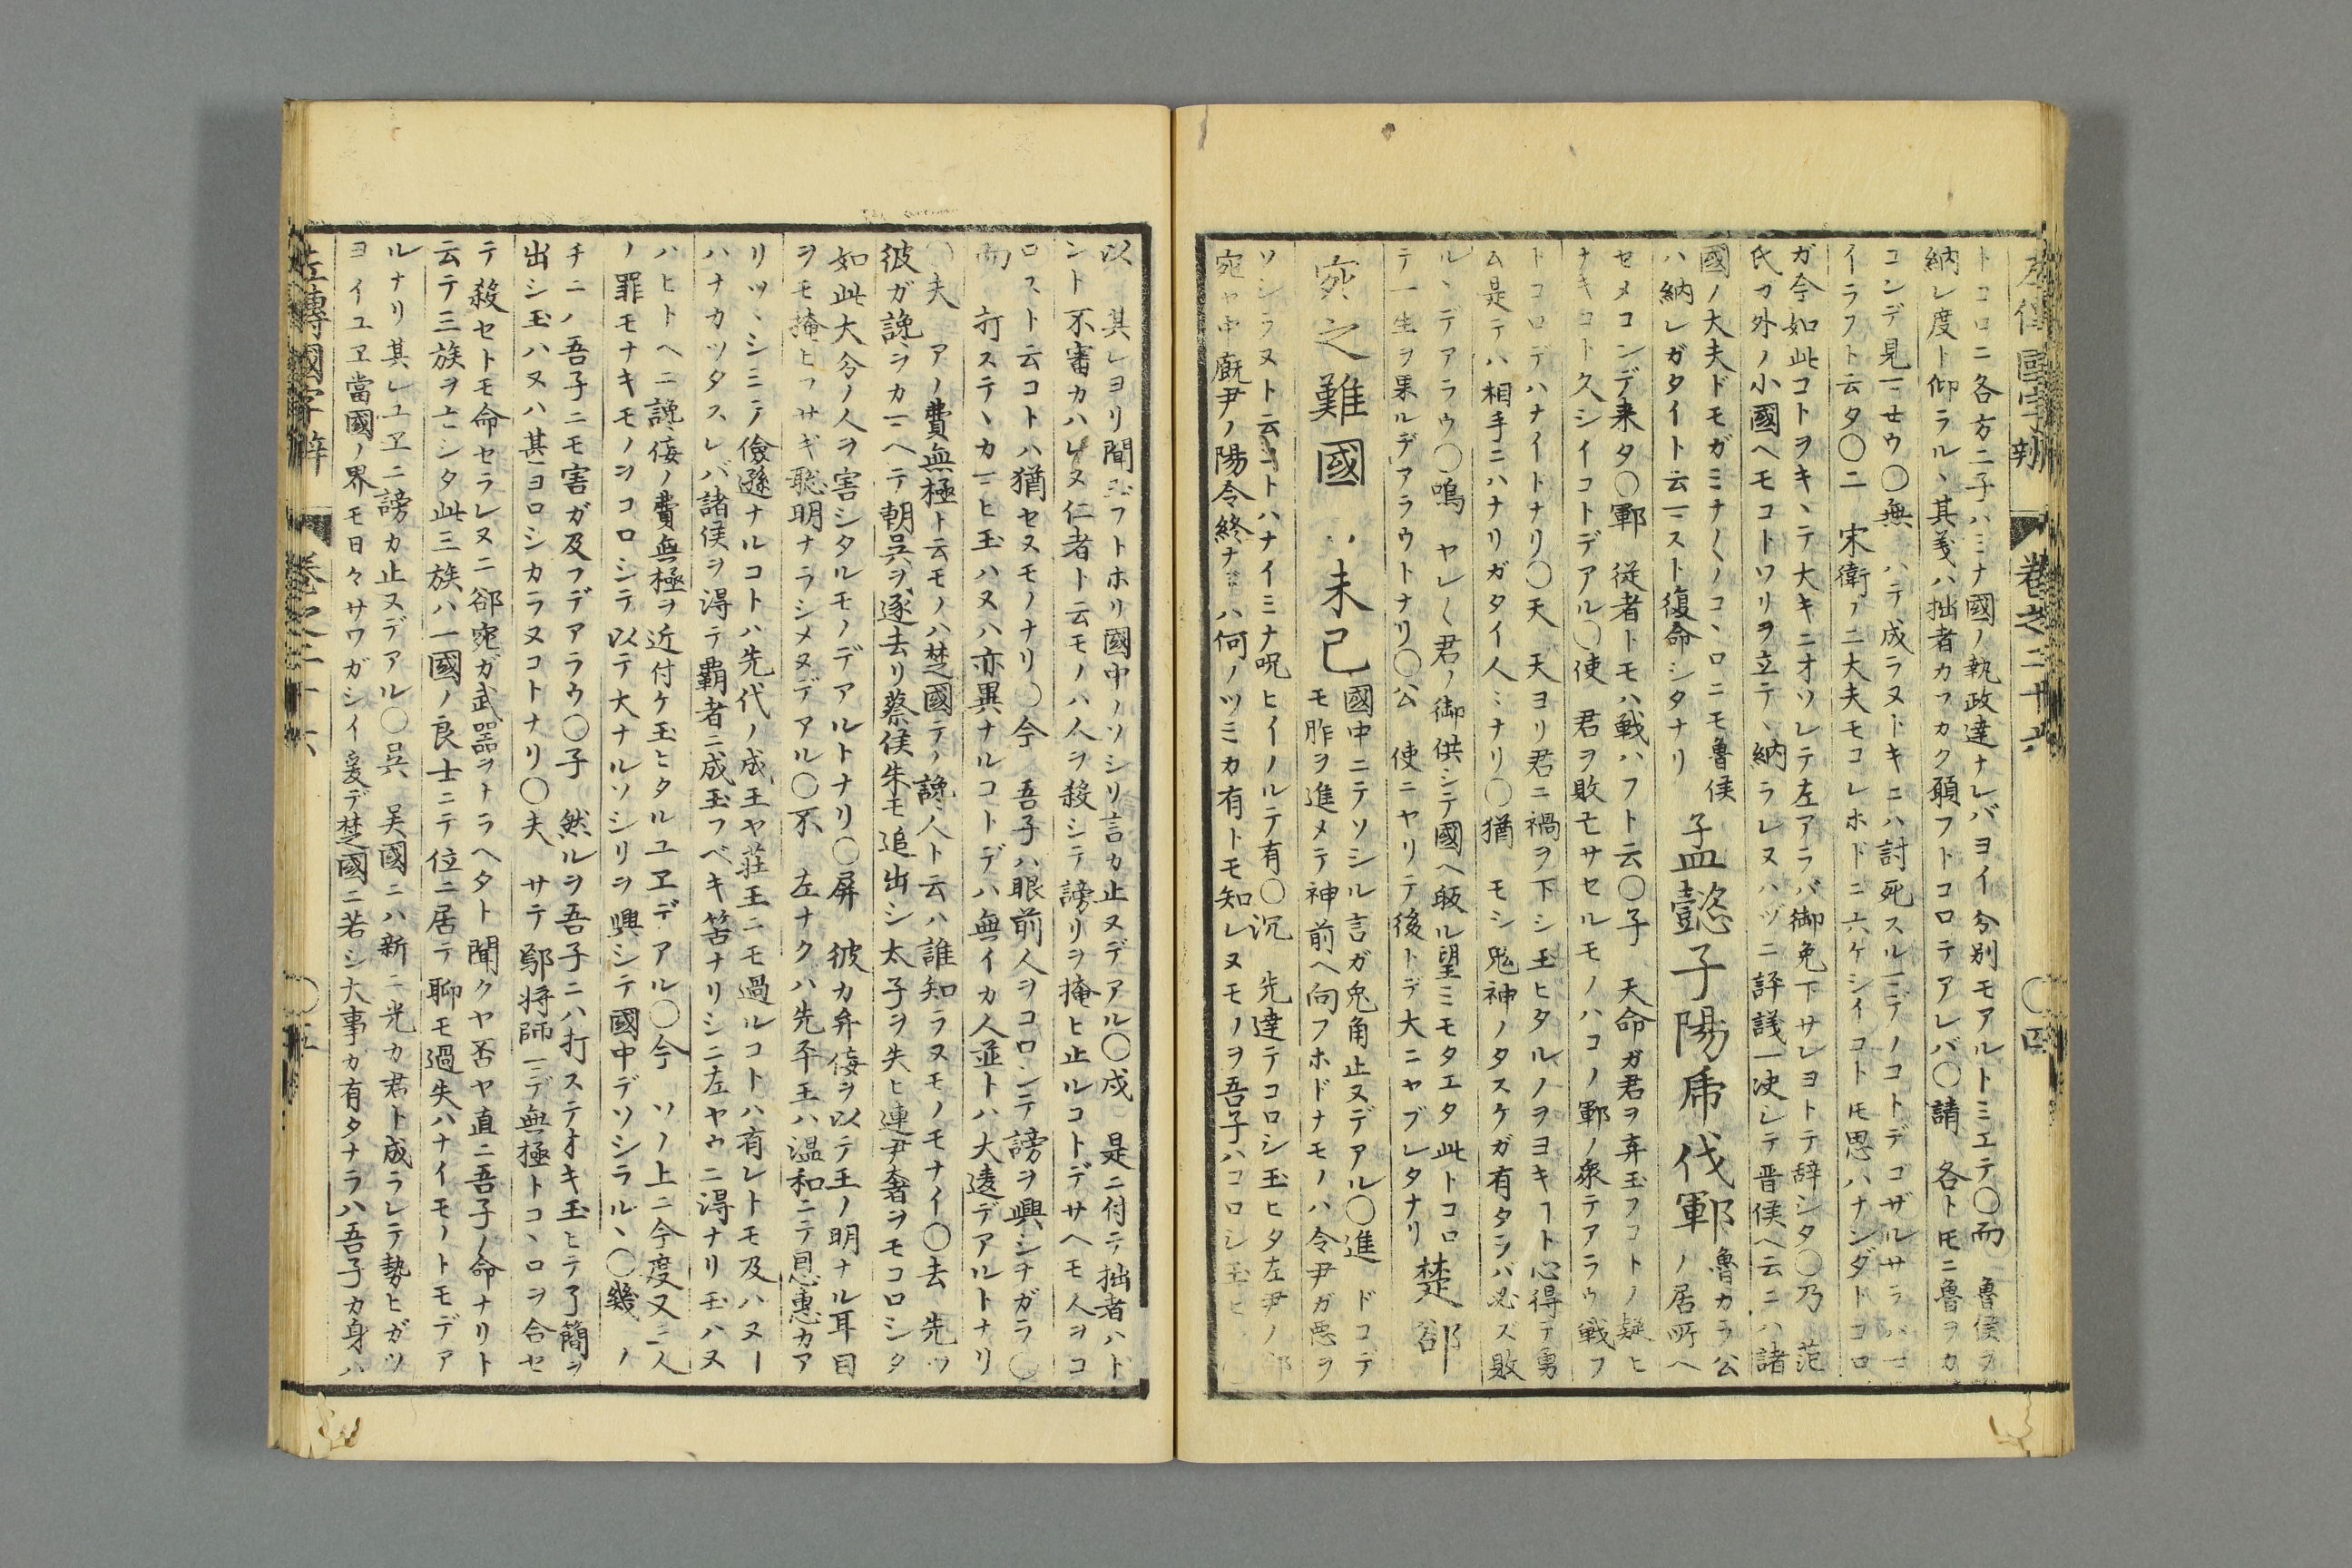 左傳國字辨 卷之二十六 〇四
トコロニ各方二子ハミナ國ノ執政達ナレバヨイ分別モアルトミエテ〇而 魯侯ヲ
納レ度ト仰ラルヽ其義ハ拙者カフカク願フトコロテアレバ〇請 各トモニ魯ヲカ
コンデ見マセウ〇無 ハテ成ラヌトキニハ討死スルマデノコトデゴザルサラバ
イラフト云タ〇二 宋衛ノ二大夫モコレホドニ六ケシイコトモ思ハナンダトコロ
ガ今如此コトヲキヽテ大キニオソレテ左アラバ御免下サレヨトテ辞シタ〇乃 范
氏カ外ノ小國ヘモコトワリヲ立テヽ納ラレヌハヅニ評議一决シテ晋侯ヘ云ニハ諸
國ノ大夫ドモガミナ〱ノコヽロニモ魯侯
ハ納レガタイト云マスト復命シタナリ 孟懿子陽虎伐鄆 魯カラ公
ノ居所ヘ
セメコンデ来タ〇鄆 従者トモハ戦ハフト云〇子 天命ガ君ヲ弃玉フコトノ疑ヒ
ナキコト久シイコトデアル〇使 君ヲ敗モサセルモノハコノ鄆ノ衆テアラウ戦フ
トコロデハナイトナリ〇天 天ヨリ君ニ禍ヲ下シ玉ヒタルノヲヨキコト心得テ勇
ム是テハ相手ニハナリガタイ人ミナリ〇猶 モシ鬼神ノタスケガ有タラバ必ズ敗
ルヽデアラウ〇嗚 ヤレ〱君ノ御供シテ國ヘ皈ル望ミモタエタ此トコロ
テ一生ヲ果ルデアラウトナリ〇公 使ニヤリテ後トデ大ニヤブレタナリ 楚郤
宛之難國言未已 國中ニテソシル言ガ兎角止ヌデアル〇進 ドコテ
モ胙ヲ進メテ神前ヘ向フホドナモノハ令尹ガ悪ヲ
ソシラヌト云コトハナイミナ呪ヒイノルテ有〇沉 先達テコロシ玉ヒタ左尹ノ郤
宛ヤ中廐尹ノ陽令終ナドハ何ノツミカ有トモ知レヌモノヲ吾子ハコロシ玉ヒ
以 其レヨリ間玉フトホリ國中ノソシリ言カ止ヌデアル〇戍 是ニ付テ拙者ハト
ント不審カハレヌ仁者ト云モノハ人ヲ殺シテ謗リヲ掩ヒ止ルコトデサヘモ人ヲコ
ロスト云コトハ猶セヌモノナリ〇今 吾子ハ眼前人ヲコロシテ謗ヲ興シナガラ〇
而 打ステヽカマヒ玉ハヌハ亦異ナルコトデハ無イカ人並トハ大遠デアルトナリ
〇夫 アノ費無極ト云モノハ楚國テノ讒人ト云ハ誰知ラヌモノモナイ〇去 先ツ
彼ガ讒ヲカマヘテ朝呉ヲ逐去リ蔡侯朱モ追出シ太子ヲ失ヒ連尹奢ヲモコロシタ
如此大分ノ人ヲ害シタルモノデアルトナリ〇屏 彼カ弁侫ヲ以テ王ノ明ナル耳目
ヲモ掩ヒフサギ聡明ナラシメヌデアル〇不 左ナクハ先平王ハ温和ニテ恩惠カア
リツヽシミテ儉遜ナルコトハ先代ノ成王ヤ荘王ニモ過ルコトハ有レトモ及ハヌー
ハナカツタスレバ諸侯ヲ得テ覇者ニ成玉フベキ筈ナリシニ左ヤウニ得ナリ玉ハヌ
ハヒトヘニ讒侫ノ費無極ヲ近付ケ玉ヒタルユヱデアル〇今 ソノ上ニ今度又三人
ノ罪モナキモノヲコロシテ以テ大ナルソシリヲ興シテ國中デソシラルヽ〇幾 ノ
チニハ吾子ニモ害ガ及フデアラウ〇子 然ルヲ吾子ニハ打ステオキ玉ヒテ了簡ヲ
出シ玉ハヌハ其ヨロシカラヌコトナリ〇夫 サテ鄢将師マデ無極トコヽロヲ合セ
テ殺セトモ命セラレヌニ郤宛ガ武器ヲトラヘタト聞クヤ否ヤ直ニ吾子ノ命ナリト
云テ三族ヲ亡シタ此三族ハ一國ノ良士ニテ位ニ居テ聊モ過失ハナイモノトモデア
ルナリ其レユヱニ謗カ止ヌデアル〇呉 呉國ニハ新ニ光カ君ト成ラレテ勢ヒガツ
ヨイユヱ當國ノ界モ日々サワガシイ爰デ楚國ニ若シ大事カ有タナラハ吾子カ身ハ
左傳國字辨 卷之二十六 〇五